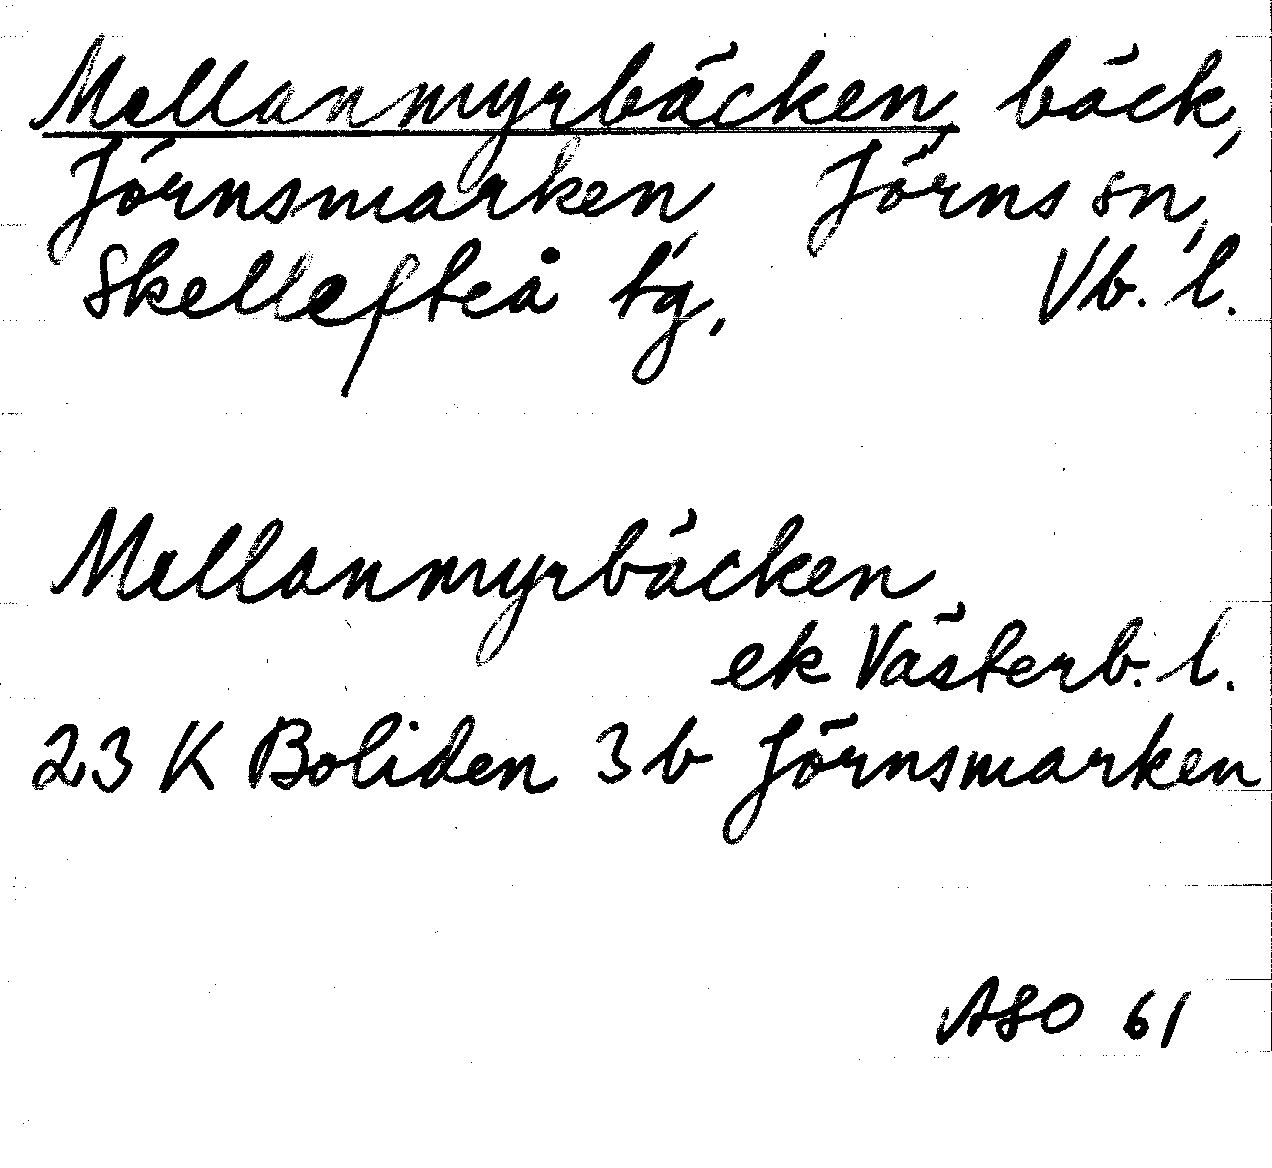 Mellanmyrbäcken, bäck,
Jörnsmarken, Jörns sn,
Skellefteå tg, Vb. l.
Mellanmyrbäcken
ek Västerb. l.
23 K Boliden 3 b Jörnsmarken
ASO 61